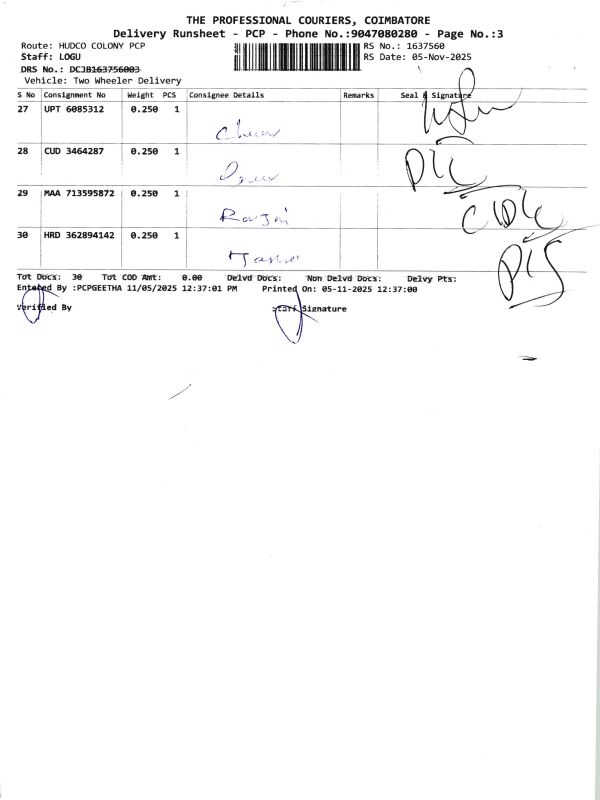 THE PROFESSIONAL COURIERS, COIMBATORE
Delivery Runsheet - PCP - Phone No.:9047080280 - Page No.:3
Route: HUDCO COLONY PCP RS No.: 1637560
Staff: LOGU RS Date: 05-Nov-2025
DRS No.: DCJB163756003
Vehicle: Two Wheeler Delivery
S No Consignment No Weight PCS Consignee Details Remarks Seal & Signature
27 UPT 6085312 0.250 1
28 CUD 3464287 0.250 1
29 MAA 713595872 0.250 1
30 HRD 362894142 0.250 1
Tot Docs: 30 Tot COD Amt: 0.00 Delvd Docs: Non Delvd Docs: Delvy Pts:
Entered By :PCPGEETHA 11/05/2025 12:37:01 PM Printed On: 05-11-2025 12:37:00
Verified By Staff Signature